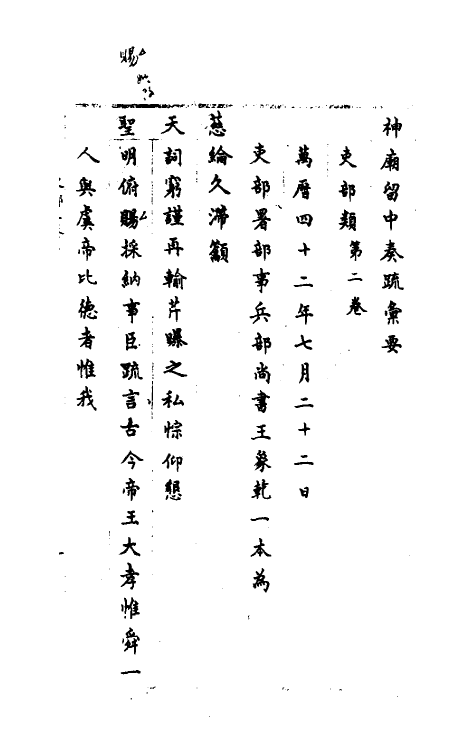 神廟留中奏疏彙要
吏部類 第二卷
萬曆四十二年七月二十二日
吏部署部事兵部尚書王象乾一本為
慈綸久滯籲
天詞窮謹再輸芹曝之私悰仰懇
聖明俯賜採納事臣疏言古今帝王大孝惟舜一
人與虞帝比德者惟我
賜